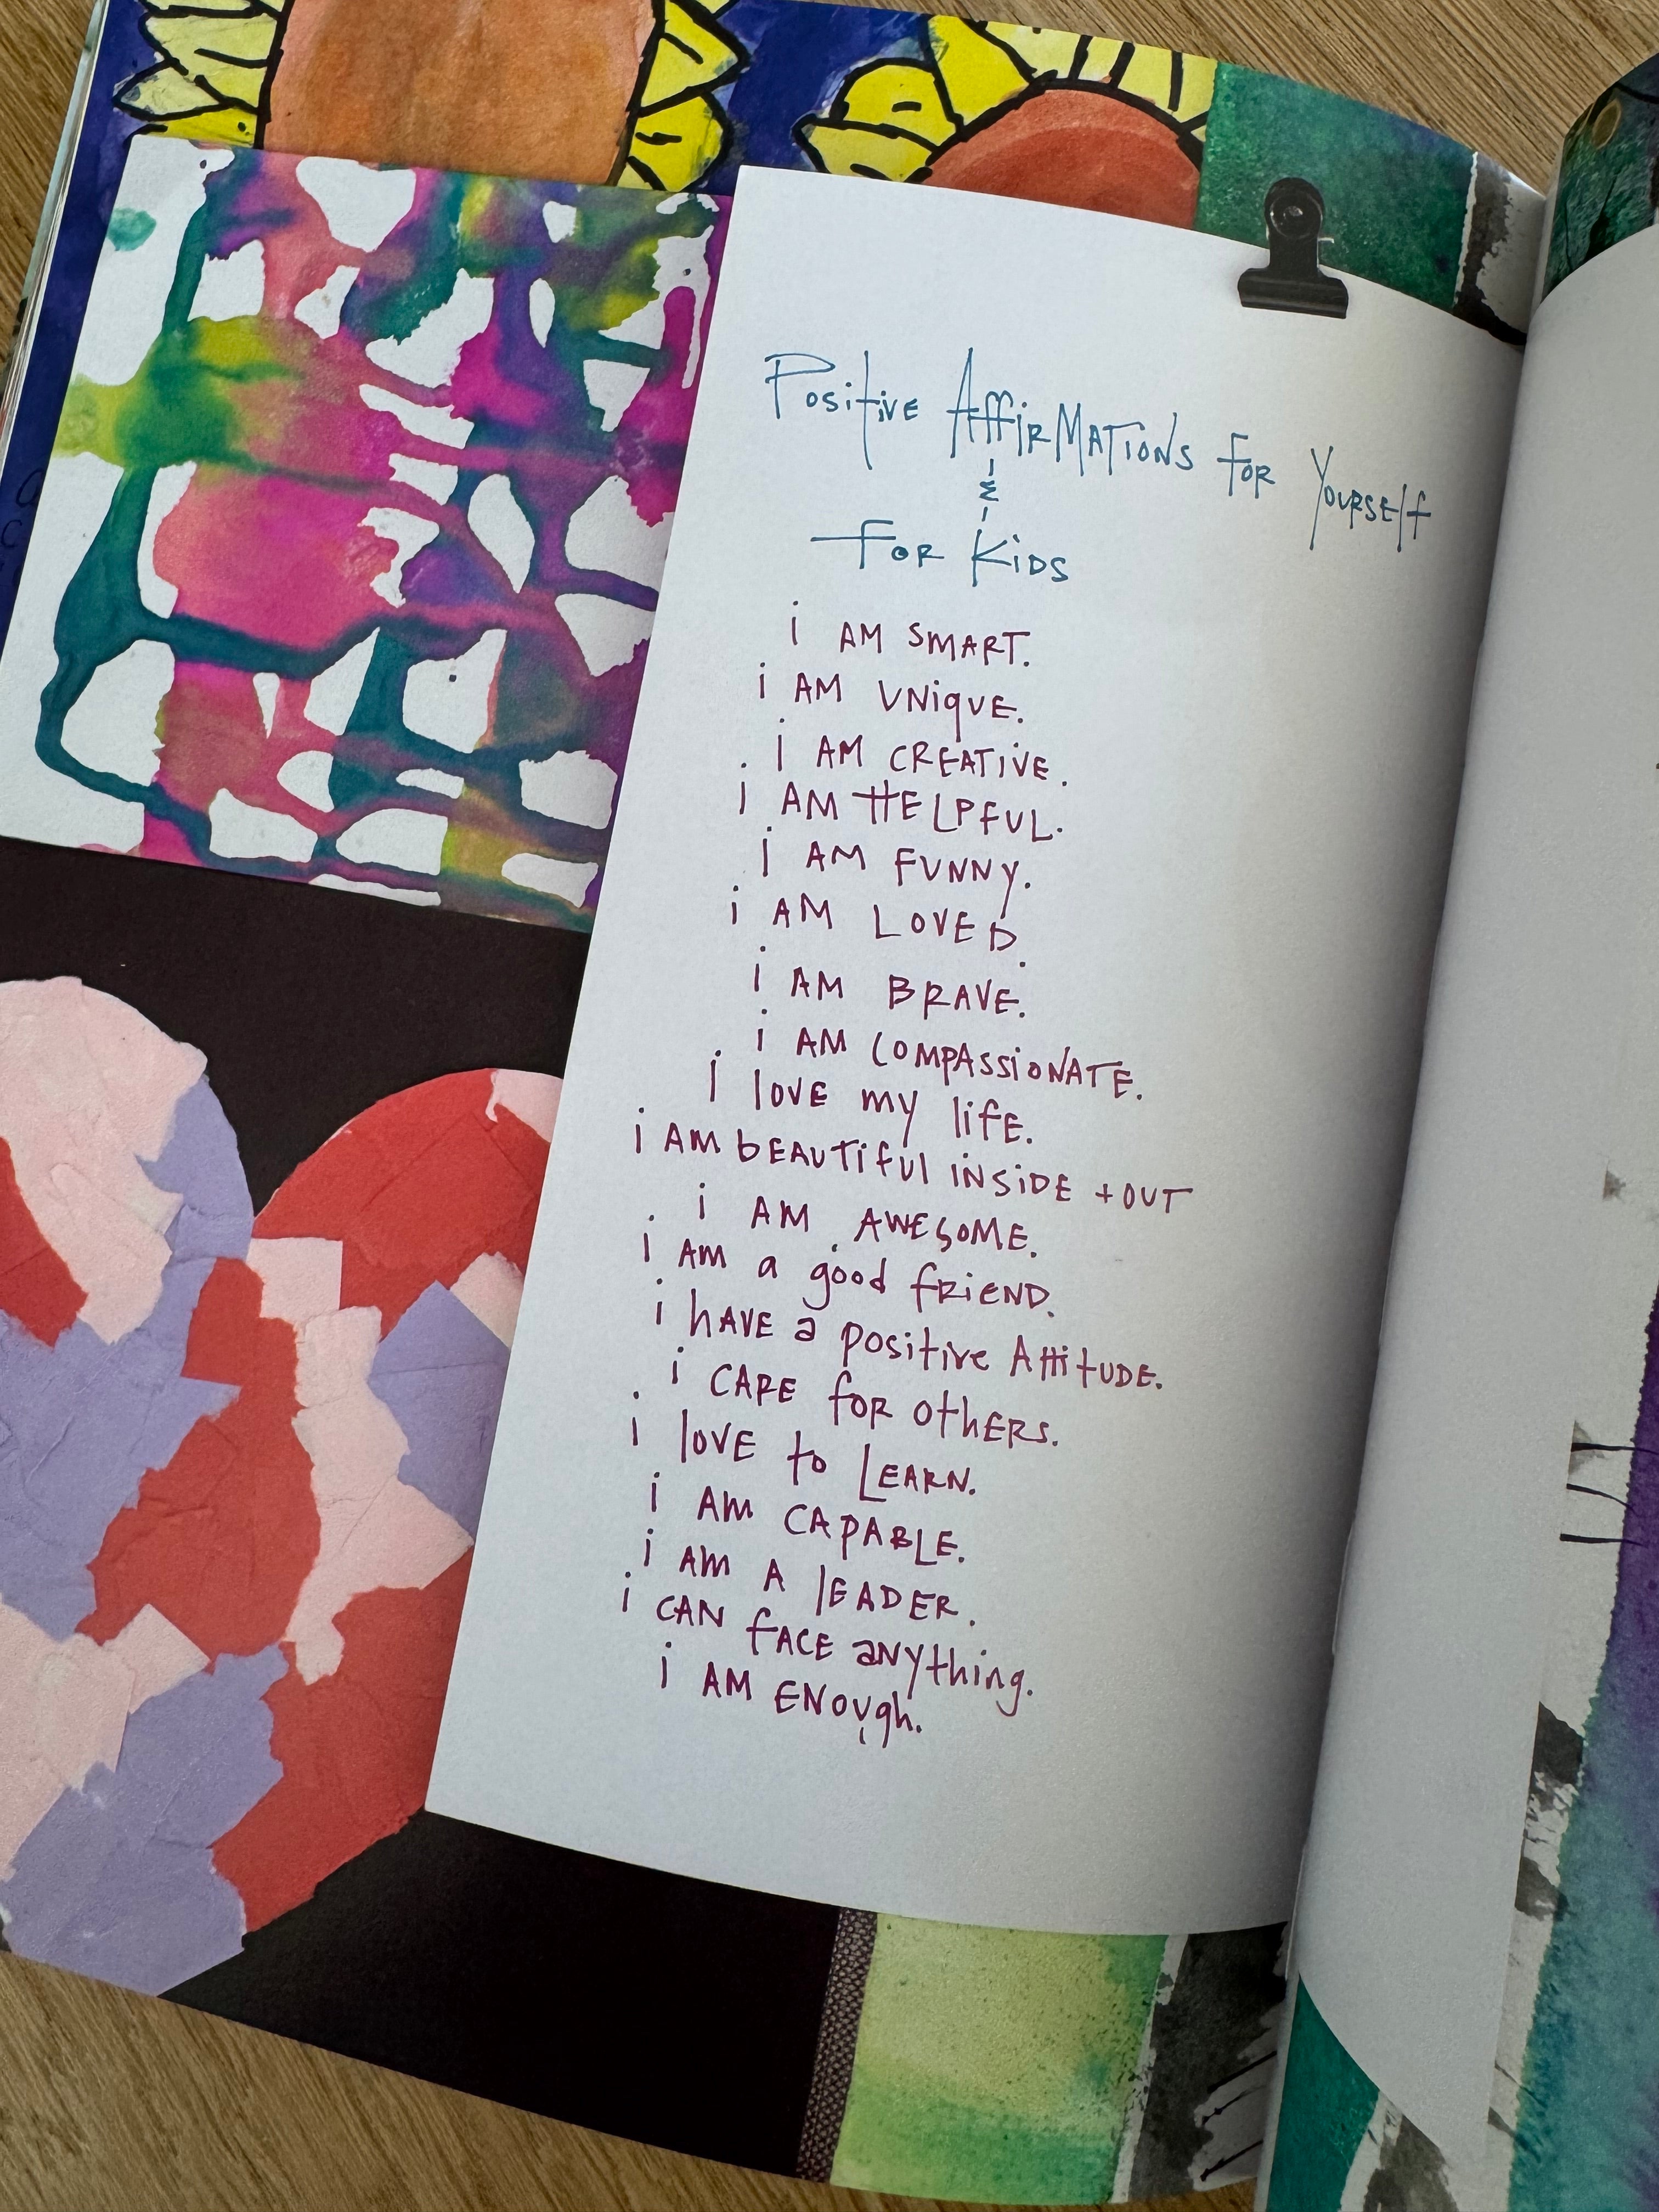 Positive Affirmations for Yourself
&
for Kids
i AM SMART.
i AM UNiqUE.
i AM CREATiVE.
i AM HELPFUL.
i AM FUNNY.
i AM LOVED.
i AM BRAVE.
i AM COMPASSiONATE.
i lovE my lifE.
i AM bEAUTiful iNSiDE + OUT
i AM AWESOME.
i AM a good friEND.
i hAVE a positive AttitUDE.
i CARE for OthERS.
i lOVE to LEARN.
i AM CAPABLE.
i AM A lEADER.
i CAN fACE aNything.
i AM ENOUgh.